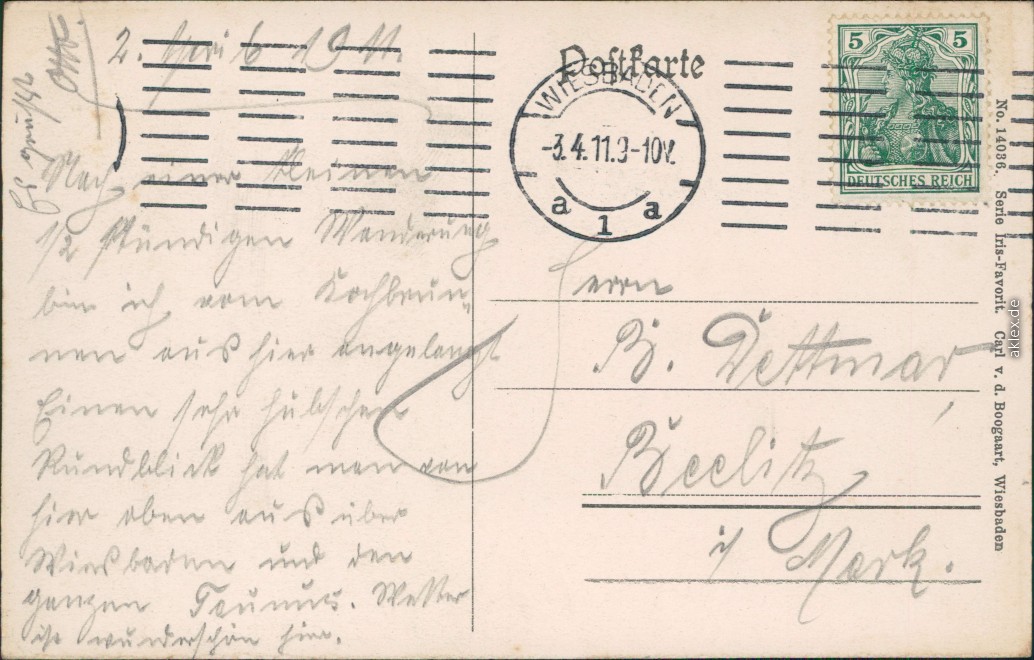 2. April 1911.
Nach einer kleinen
1/2 stündigen Wanderung
bin ich vom Kochbrun-
nen aus hier angelangt
Einen sehr hübschen
Rundblick hat man von
hier oben aus über
Wiesbaden und den
ganzen Taunus. Wetter
ist wunderschön hier.
Es grüsst
Otto.
Postkarte
WIESBADEN
-3.4.11.9-10V.
a 1 a
5 5
DEUTSCHES REICH
Herrn
B. Dettmar
Beelitz
i/ Mark.
No. 14036. Serie Iris-Favorit. Carl v. d. Boogaart, Wiesbaden
aklex.de